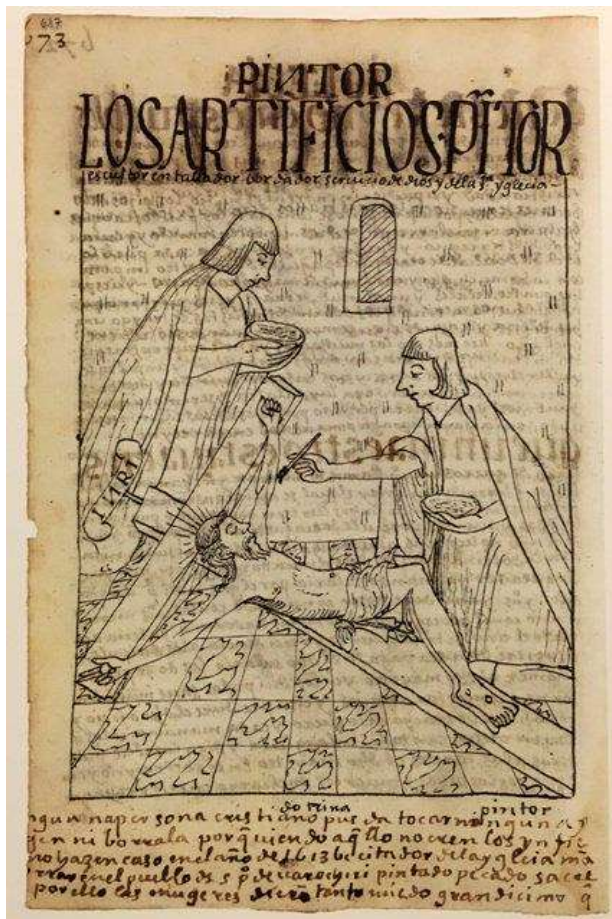 687
673
PINTOR
LOS ARTIFICIOS, PĪTOR
escultor entallador bordador seruicio de dios y de la s^ta yglecia
INRI
dotrina pintor
nguna persona cristiano pueda tocar ninguna y
gen ni borrala porq̄ uiendo aq̄llo no cren los yn
no hazen caso en el año de 1613 becitador de la yglecia ma
en el pueblo de s p^o de uarochiri pintado pecado sacel
por ello las mugeres tanto miedo grandicimo q̄